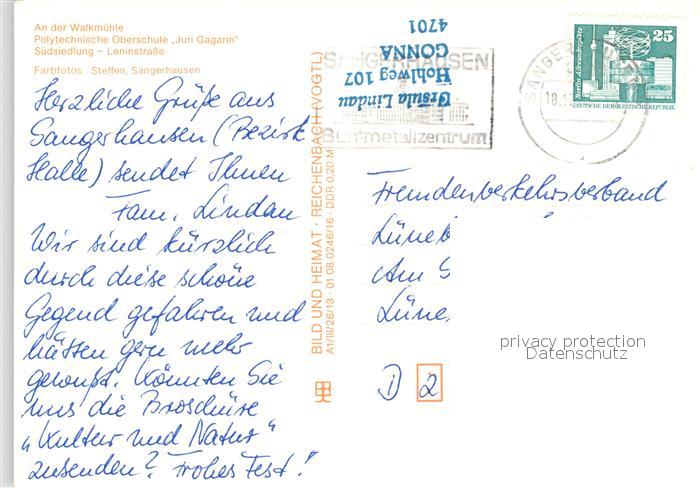 An der Walkmühle
Polytechnische Oberschule „Juri Gagarin"
Südsiedlung – Leninstraße
Farbfotos: Steffen, Sangerhausen
Herzliche Grüße aus
Sangerhausen (Bezirk
Halle) sendet Ihnen
Fam. Lindau
Wir sind kürzlich
durch diese schöne
Gegend gefahren und
hätten gern mehr
gewußt. Könnten Sie
uns die Broschüre
„Kultur und Natur"
zusenden? Frohes Fest!
BILD UND HEIMAT · REICHENBACH (VOGTL)
A1/III/26/13 · 01 08 0246/16 · DDR 0,20 M
Ursula Lindau
Hohlweg 107
GONNA
4701
SANGERHAUSEN
Buntmetallzentrum
SANGER
18.
25
Berlin, Alexanderplatz
DEUTSCHE DEMOKRATISCHE REPUBLIK
Fremdenverkehrsverband
Lüneb
Am
Lüne
D 2
privacy protection
Datenschutz